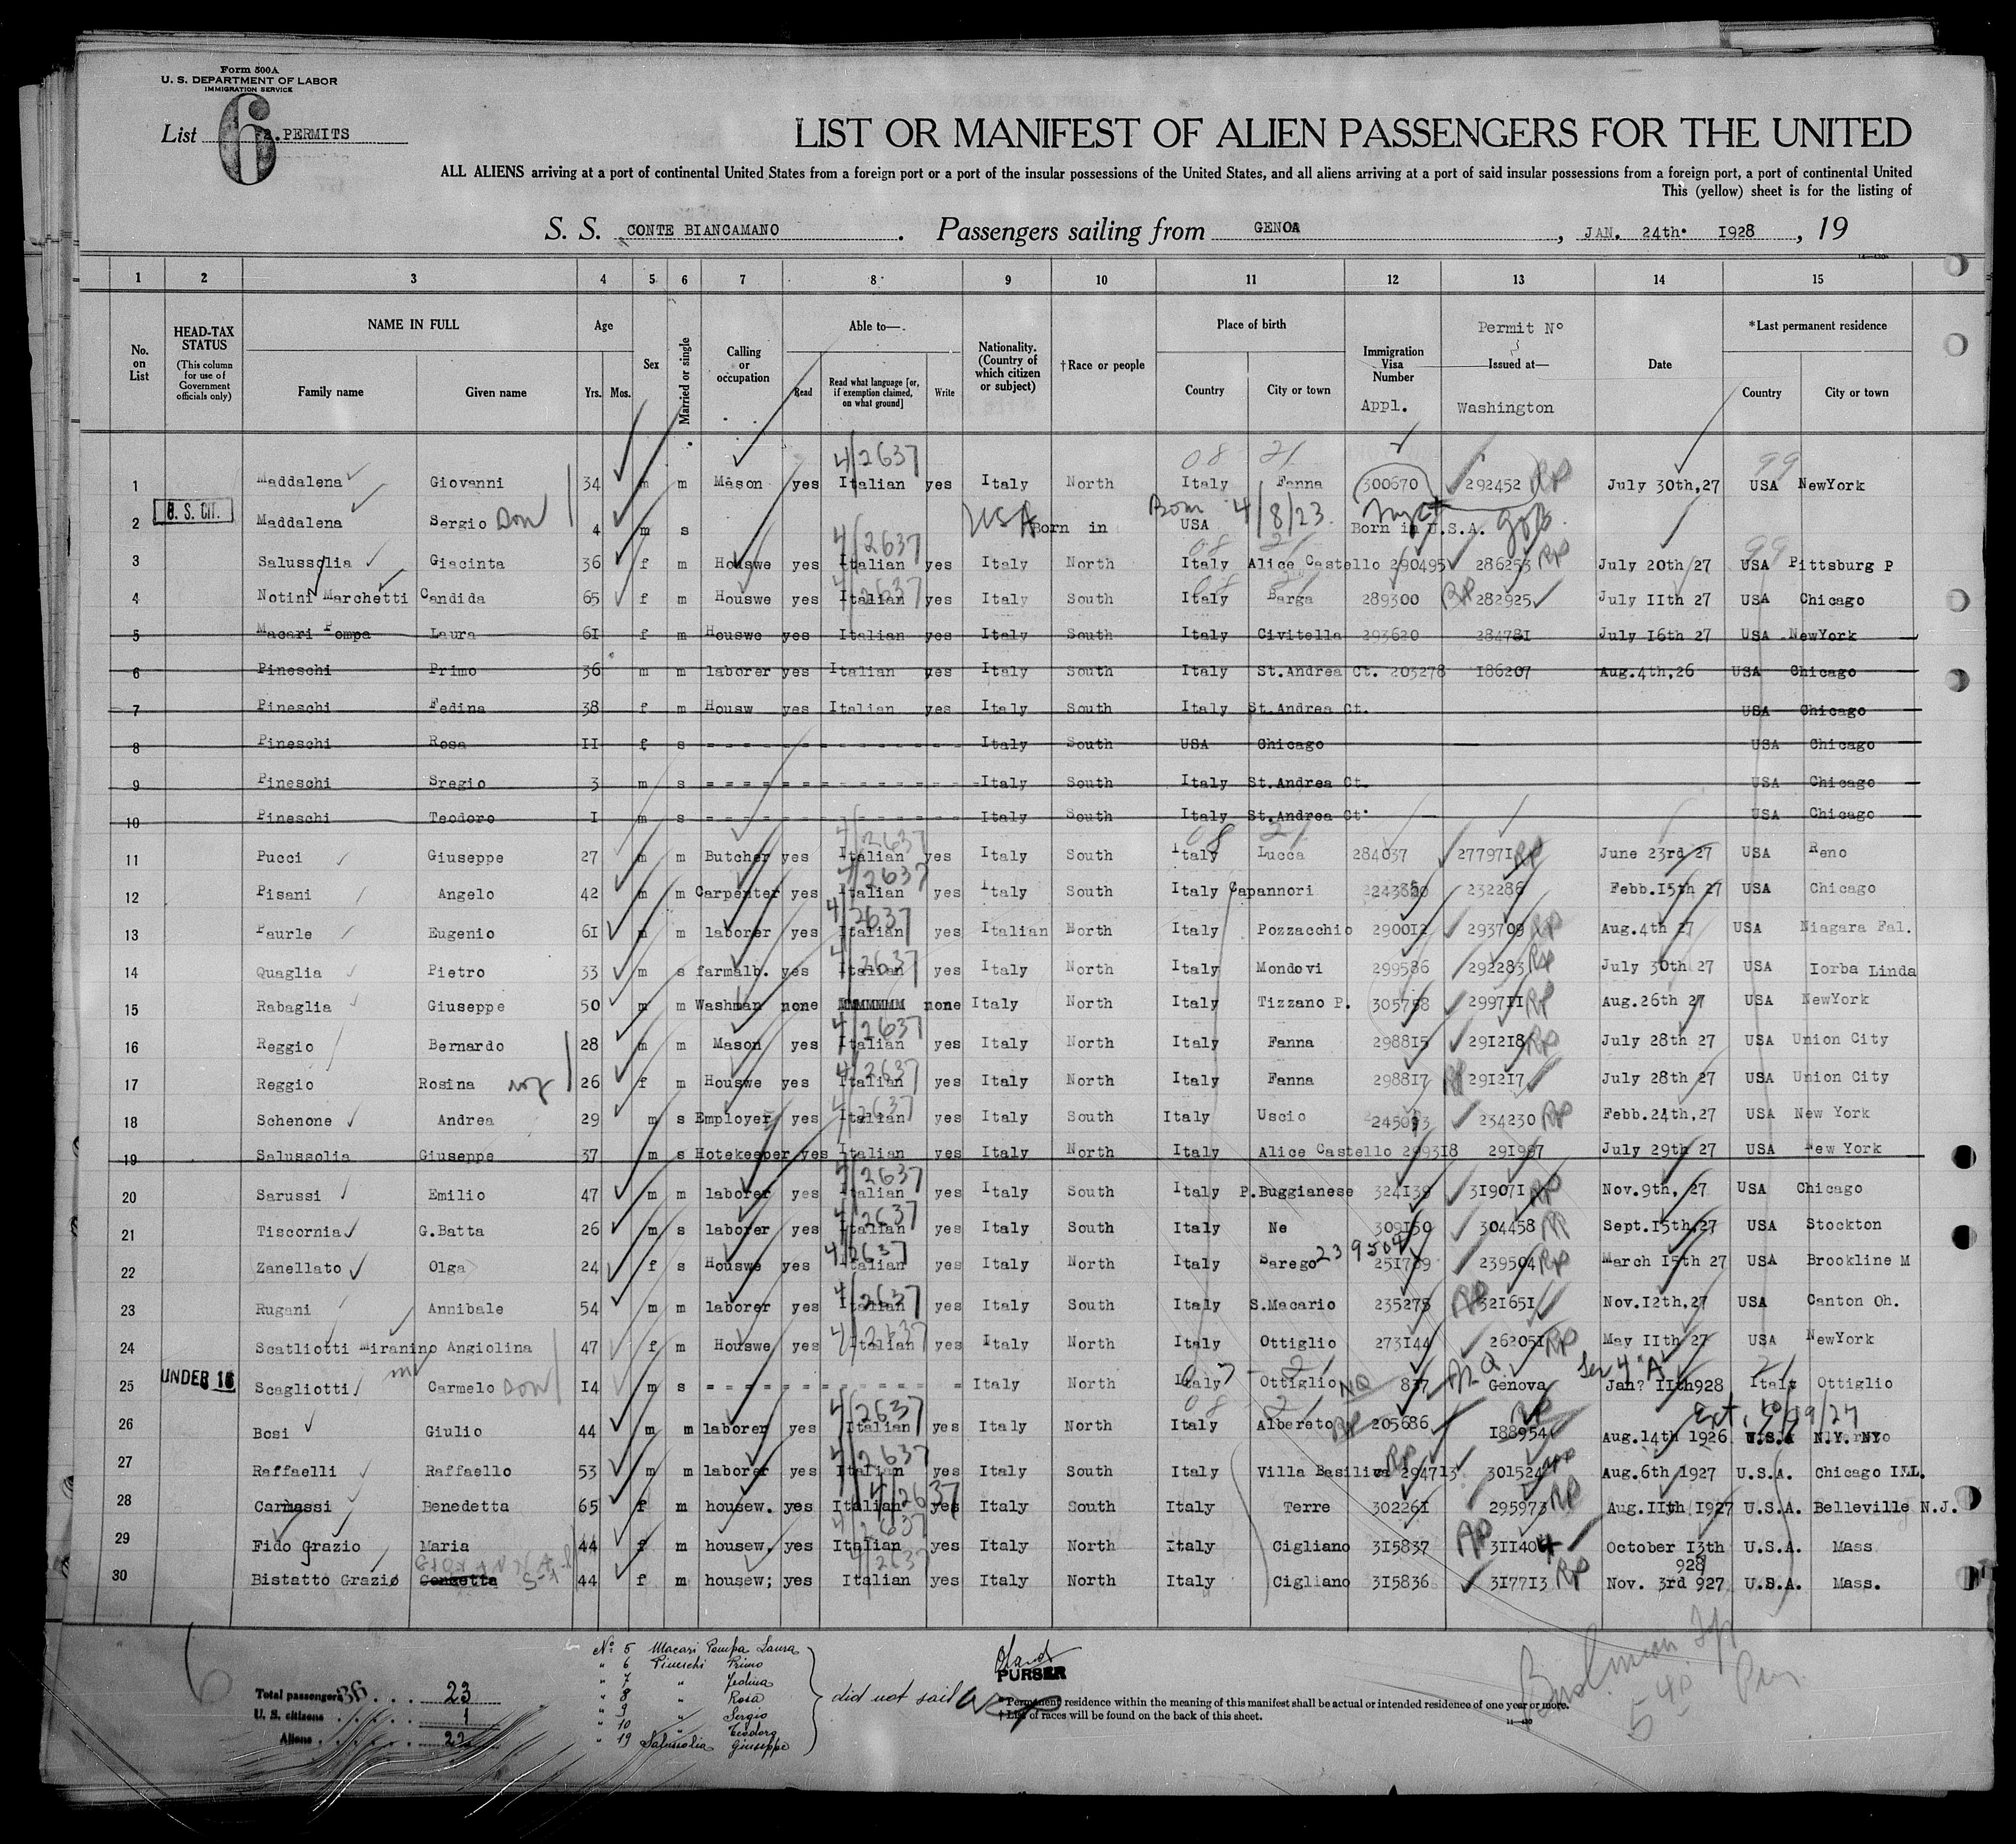 Form 500A
U. S. DEPARTMENT OF LABOR
IMMIGRATION SERVICE
List 6 PERMITS
LIST OR MANIFEST OF ALIEN PASSENGERS FOR THE UNITED
ALL ALIENS arriving at a port of continental United States from a foreign port or a port of the insular possessions of the United States, and all aliens arriving at a port of said insular possessions from a foreign port, a port of continental United
This (yellow) sheet is for the listing of
S. S. CONTE BIANCAMANO . Passengers sailing from GENOA , JAN. 24th. 1928 , 19
1 2 3 4 5 6 7 8 9 10 11 12 13 14 15
No. on List
HEAD-TAX STATUS (This column for use of Government officials only)
NAME IN FULL
Family name Given name
Age
Yrs. Mos.
Sex
Married or single
Calling or occupation
Able to—
Read Read what language [or, if exemption claimed, on what ground] Write
Nationality. (Country of which citizen or subject)
†Race or people
Place of birth
Country City or town
Immigration Visa Number
Appl.
Permit Nº
Issued at—
Washington
Date
*Last permanent residence
Country City or town
1 Maddalena Giovanni 34 m m Mason yes Italian yes Italy North Italy Fanna 300670 292452 RP July 30th,27 USA NewYork
4/2637 08 21 99
2 U. S. CIT. Maddalena Sergio son 4 m s USA Born in USA Born 4/8/23. Born in U.S.A.
3 Salussolia Giacinta 36 f m Houswe yes Italian yes Italy North Italy Alice Castello 290495 286253 RP July 20th 27 USA Pittsburg P
4/2637 08 21 99
4 Notini Marchetti Candida 65 f m Houswe yes Italian yes Italy South Italy Barga 289300 RP 282925 July IIth 27 USA Chicago
5 Macari Pompa Laura 6I f m Houswe yes Italian yes Italy South Italy Civitella 293620 28478I July I6th 27 USA NewYork
6 Pineschi Primo 36 m m laborer yes Italian yes Italy South Italy St.Andrea Ct. 203278 I86207 Aug.4th,26 USA Chicago
7 Pineschi Fedina 38 f m Housw yes Italian yes Italy South Italy St.Andrea Ct. USA Chicago
8 Pineschi Rosa II f s Italy South USA Chicago USA Chicago
9 Pineschi Sregio 3 m s Italy South Italy St.Andrea Ct. USA Chicago
10 Pineschi Teodoro I m s Italy South Italy St.Andrea Ct. USA Chicago
11 Pucci Giuseppe 27 m m Butcher yes Italian yes Italy South Italy Lucca 284037 27797I RP June 23rd 27 USA Reno
4/2637 08 21
12 Pisani Angelo 42 m m Carpenter yes Italian yes Italy South Italy Capannori 232286 Febb.I5th 27 USA Chicago
13 Paurle Eugenio 6I m m laborer yes Italian yes Italian North Italy Pozzacchio 2900I2 293709 RP Aug.4th 27 USA Niagara Fal.
14 Quaglia Pietro 33 m s farmalb. yes Italian yes Italy North Italy Mondovi 299586 292283 RP July 30th 27 USA Iorba Linda
15 Rabaglia Giuseppe 50 m m Washman none none Italy North Italy Tizzano P. 305758 2997II RP Aug.26th 27 USA NewYork
16 Reggio Bernardo 28 m m Mason yes Italian yes Italy North Italy Fanna 2988I5 29I2I8 RP July 28th 27 USA Union City
17 Reggio Rosina 26 f m Houswe yes Italian yes Italy North Italy Fanna 2988I7 RP 29I2I7 July 28th 27 USA Union City
18 Schenone Andrea 29 m s Employer yes Italian yes Italy South Italy Uscio 234230 RP Febb.24th,27 USA New York
19 Salussolia Giuseppe 37 m s Hotekeeper yes Italian yes Italy North Italy Alice Castello 2993I8 29I997 July 29th 27 USA New York
20 Sarussi Emilio 47 m m laborer yes Italian yes Italy South Italy P.Buggianese 324I39 3I907I RP Nov.9th, 27 USA Chicago
21 Tiscornia G.Batta 26 m s laborer yes Italian yes Italy South Italy Ne 309I50 304458 Sept.I5th,27 USA Stockton
22 Zanellato Olga 24 f s Houswe yes Italian yes Italy North Italy Sarego 239504 25I789 239504 RP March I5th 27 USA Brookline M
23 Rugani Annibale 54 m m laborer yes Italian yes Italy South Italy S.Macario 235275 RP 32I65I Nov.I2th,27 USA Canton Oh.
24 Scatliotti Miranino Angiolina 47 f m Houswe yes Italian yes Italy North Italy Ottiglio 273I44 26205I RP May IIth 27 USA NewYork
25 UNDER 16 Scagliotti Carmelo son I4 m s Italy North Italy Ottiglio NQ 837 Genova Jan? IIth928 Italy Ottiglio
26 Bosi Giulio 44 m m laborer yes Italian yes Italy North Italy Albereto RP 205686 I88954 Aug.I4th I926 U.S.A N.Y. NY
Ext. 10/19/27
27 Raffaelli Raffaello 53 m m laborer yes Italian yes Italy South Italy Villa Basilica 2947I3 30I524 Aug.6th I927 U.S.A. Chicago ILL.
28 Carmassi Benedetta 65 f m housew. yes Italian yes Italy South Italy Terre 30226I 295973 RP Aug.IIth I927 U.S.A. Belleville N.J.
29 Fido Grazio Maria 44 f m housew. yes Italian yes Italy North Italy Cigliano 3I5837 RP 3II404 October I3th 928 U.S.A. Mass
30 Bistatto Grazio 44 f m housew; yes Italian yes Italy North Italy Cigliano 3I5836 3I77I3 RP Nov. 3rd 927 U.S.A. Mass.
Total passengers . . . 23
U. S. citizens . . . . . 1
Aliens . . . . . . 22
Nº 5 Macari Pompa Laura
" 6 Pineschi Primo
" 7 " Fedina
" 8 " Rosa
" 9 " Sergio
" 10 " Teodoro
" 19 Salussolia Giuseppe
did not sail
PURSER
*Permanent residence within the meaning of this manifest shall be actual or intended residence of one year or more.
†List of races will be found on the back of this sheet.